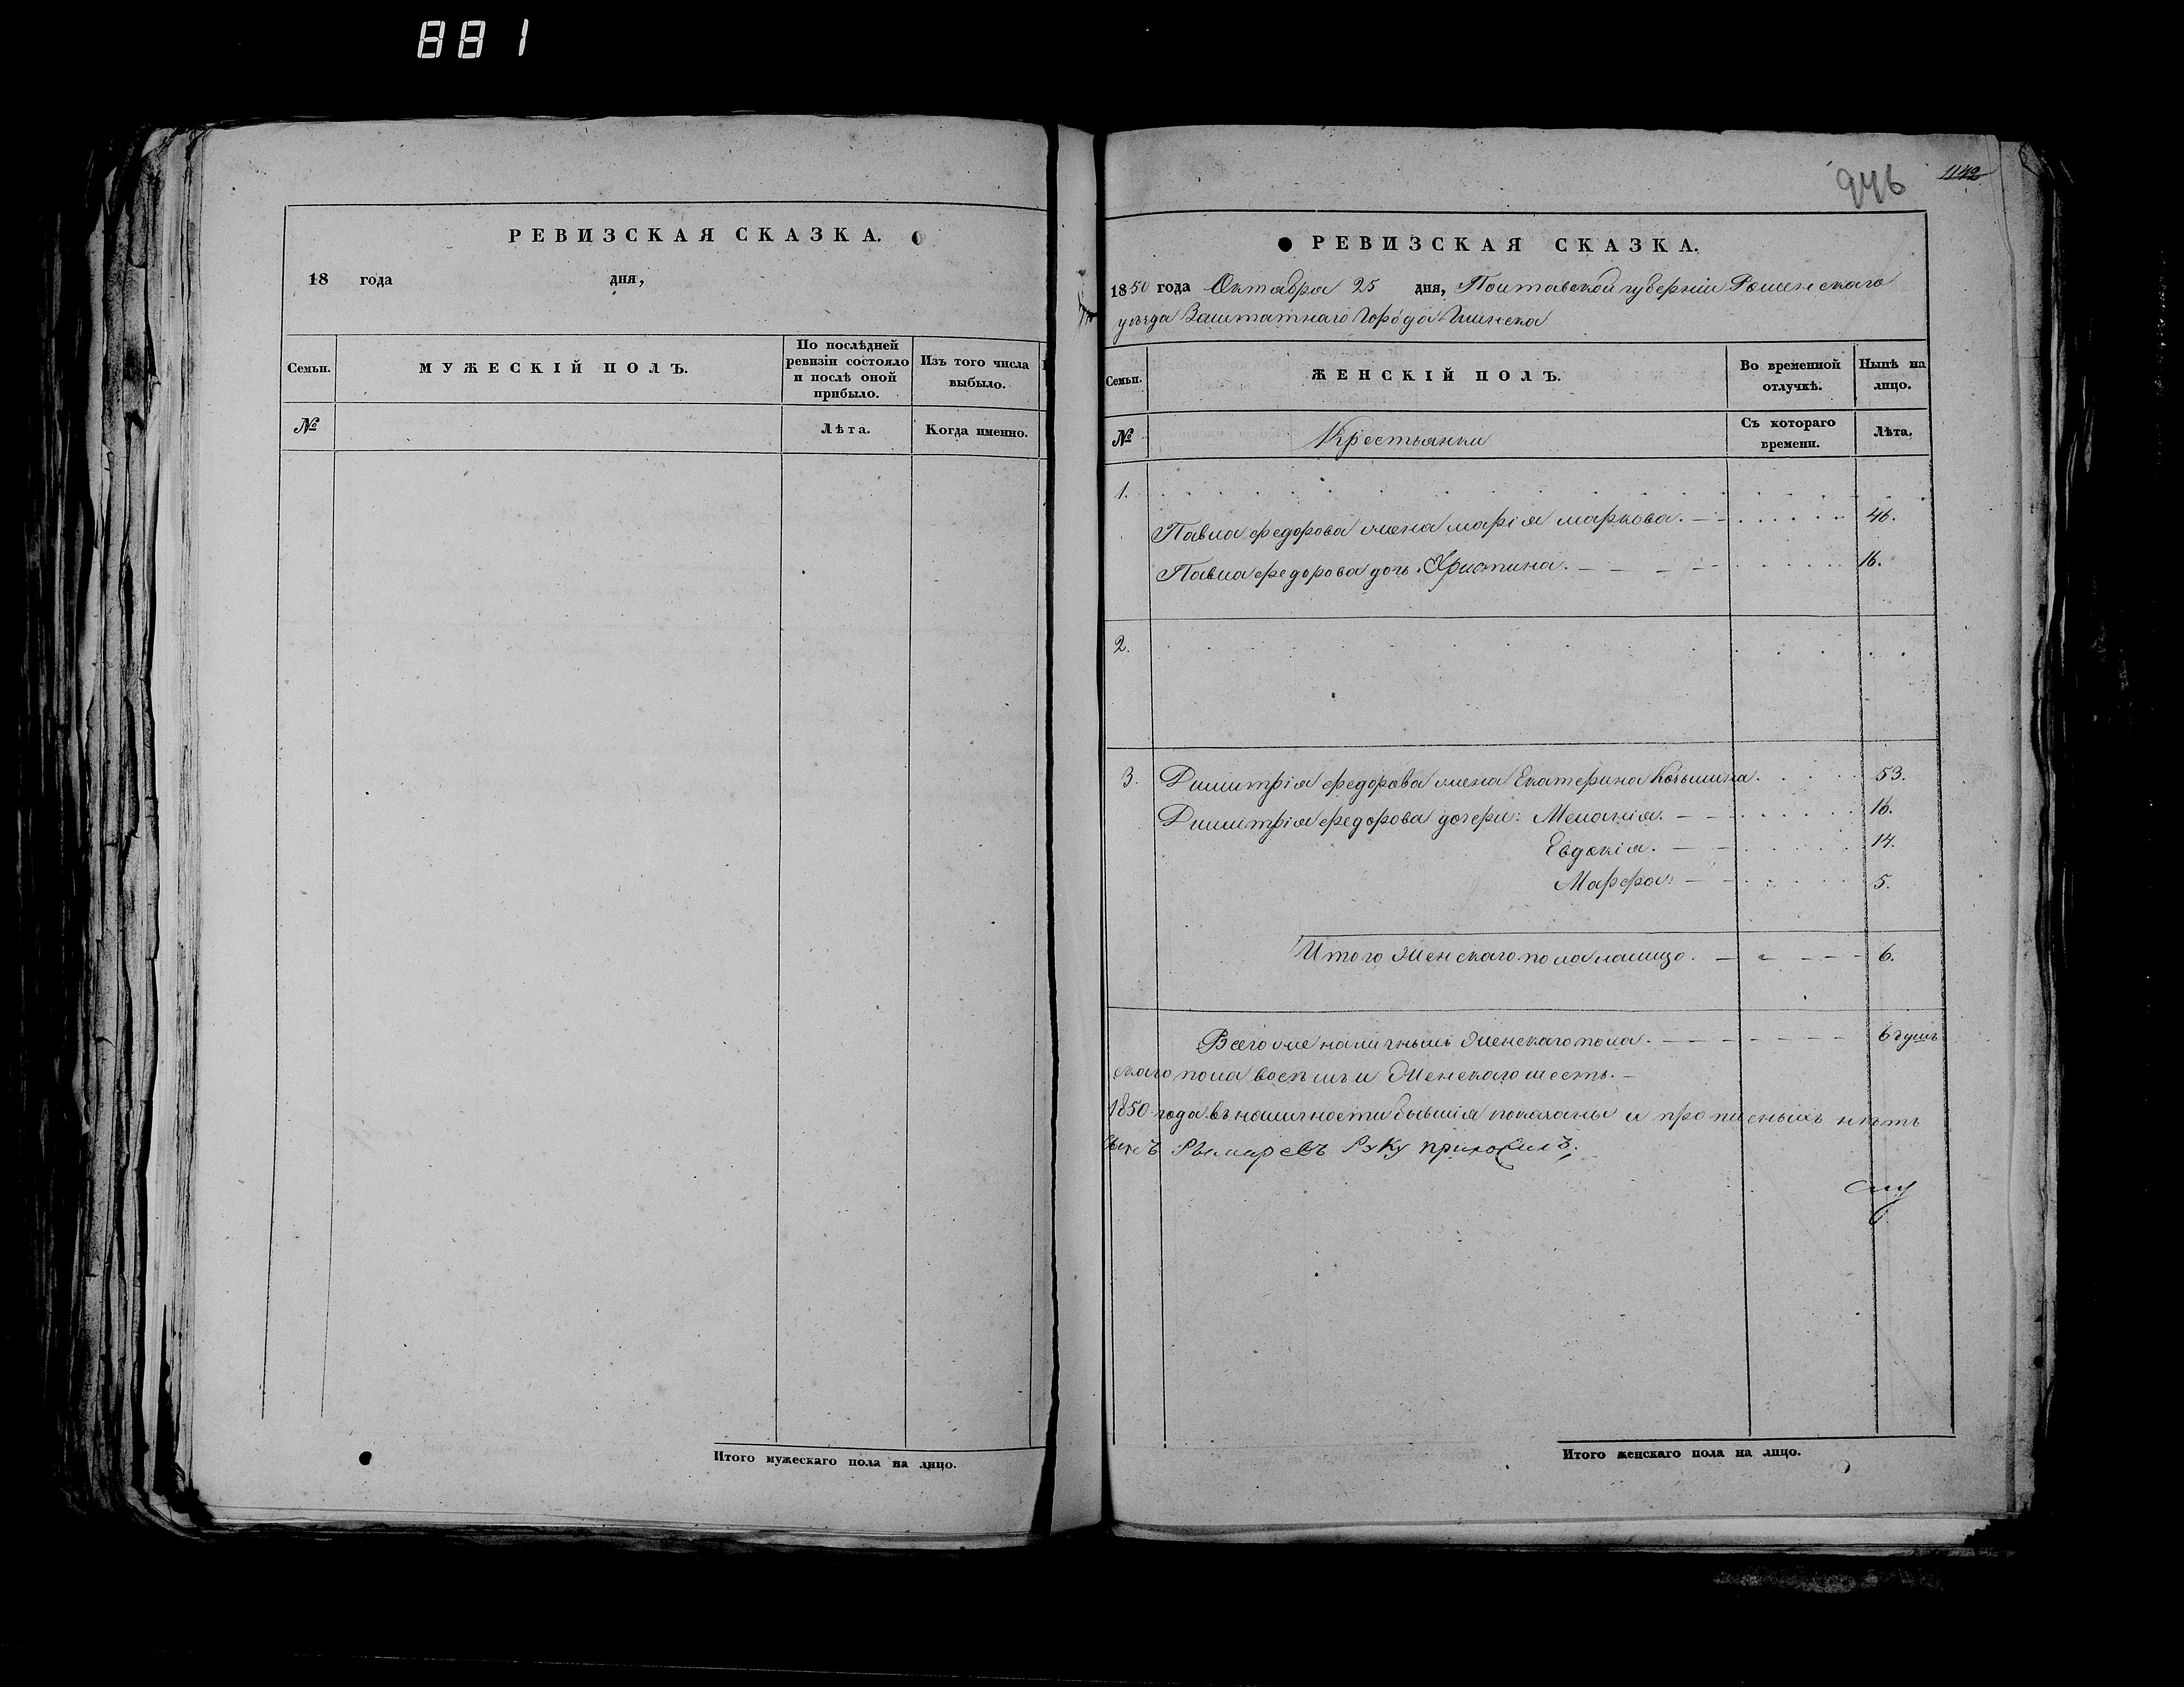 881
946 1142
РЕВИЗСКАЯ СКАЗКА.
18 года дня,
Семьи. МУЖЕСКІЙ ПОЛЪ. По послѣдней ревизіи состояло и послѣ оной прибыло. Изъ того числа выбыло.
№ Лѣта. Когда именно.
Итого мужескаго пола на лицо.
РЕВИЗСКАЯ СКАЗКА.
1850 года Октября 25 дня, Полтавской губерніи Роменскаго
уѣзда Заштатнаго Города Глинска
Семьи. ЖЕНСКІЙ ПОЛЪ. Во временной отлучкѣ. Нынѣ на лицо.
№ Крестьянки Съ котораго времени. Лѣта.
1.
Павла федорова жена марія маркова. 46.
Павла федорова дочь Христина. 16.
2.
3. Димитрія федорова жена Екатерина Козьмина. 53.
Димитрія федорова дочери: Меланія. 16.
Евдокія. 14.
Марфа. 5.
Итого Женскаго пола налицо. 6.
Всего же наличныхъ Женскаго пола. 6 душъ
скаго пола восемь и Женскаго шесть.
1850 года въ наличности бывшія показаны и прописныхъ нѣтъ
Рымаревъ Руку приложилъ.
Итого женскаго пола на лицо.